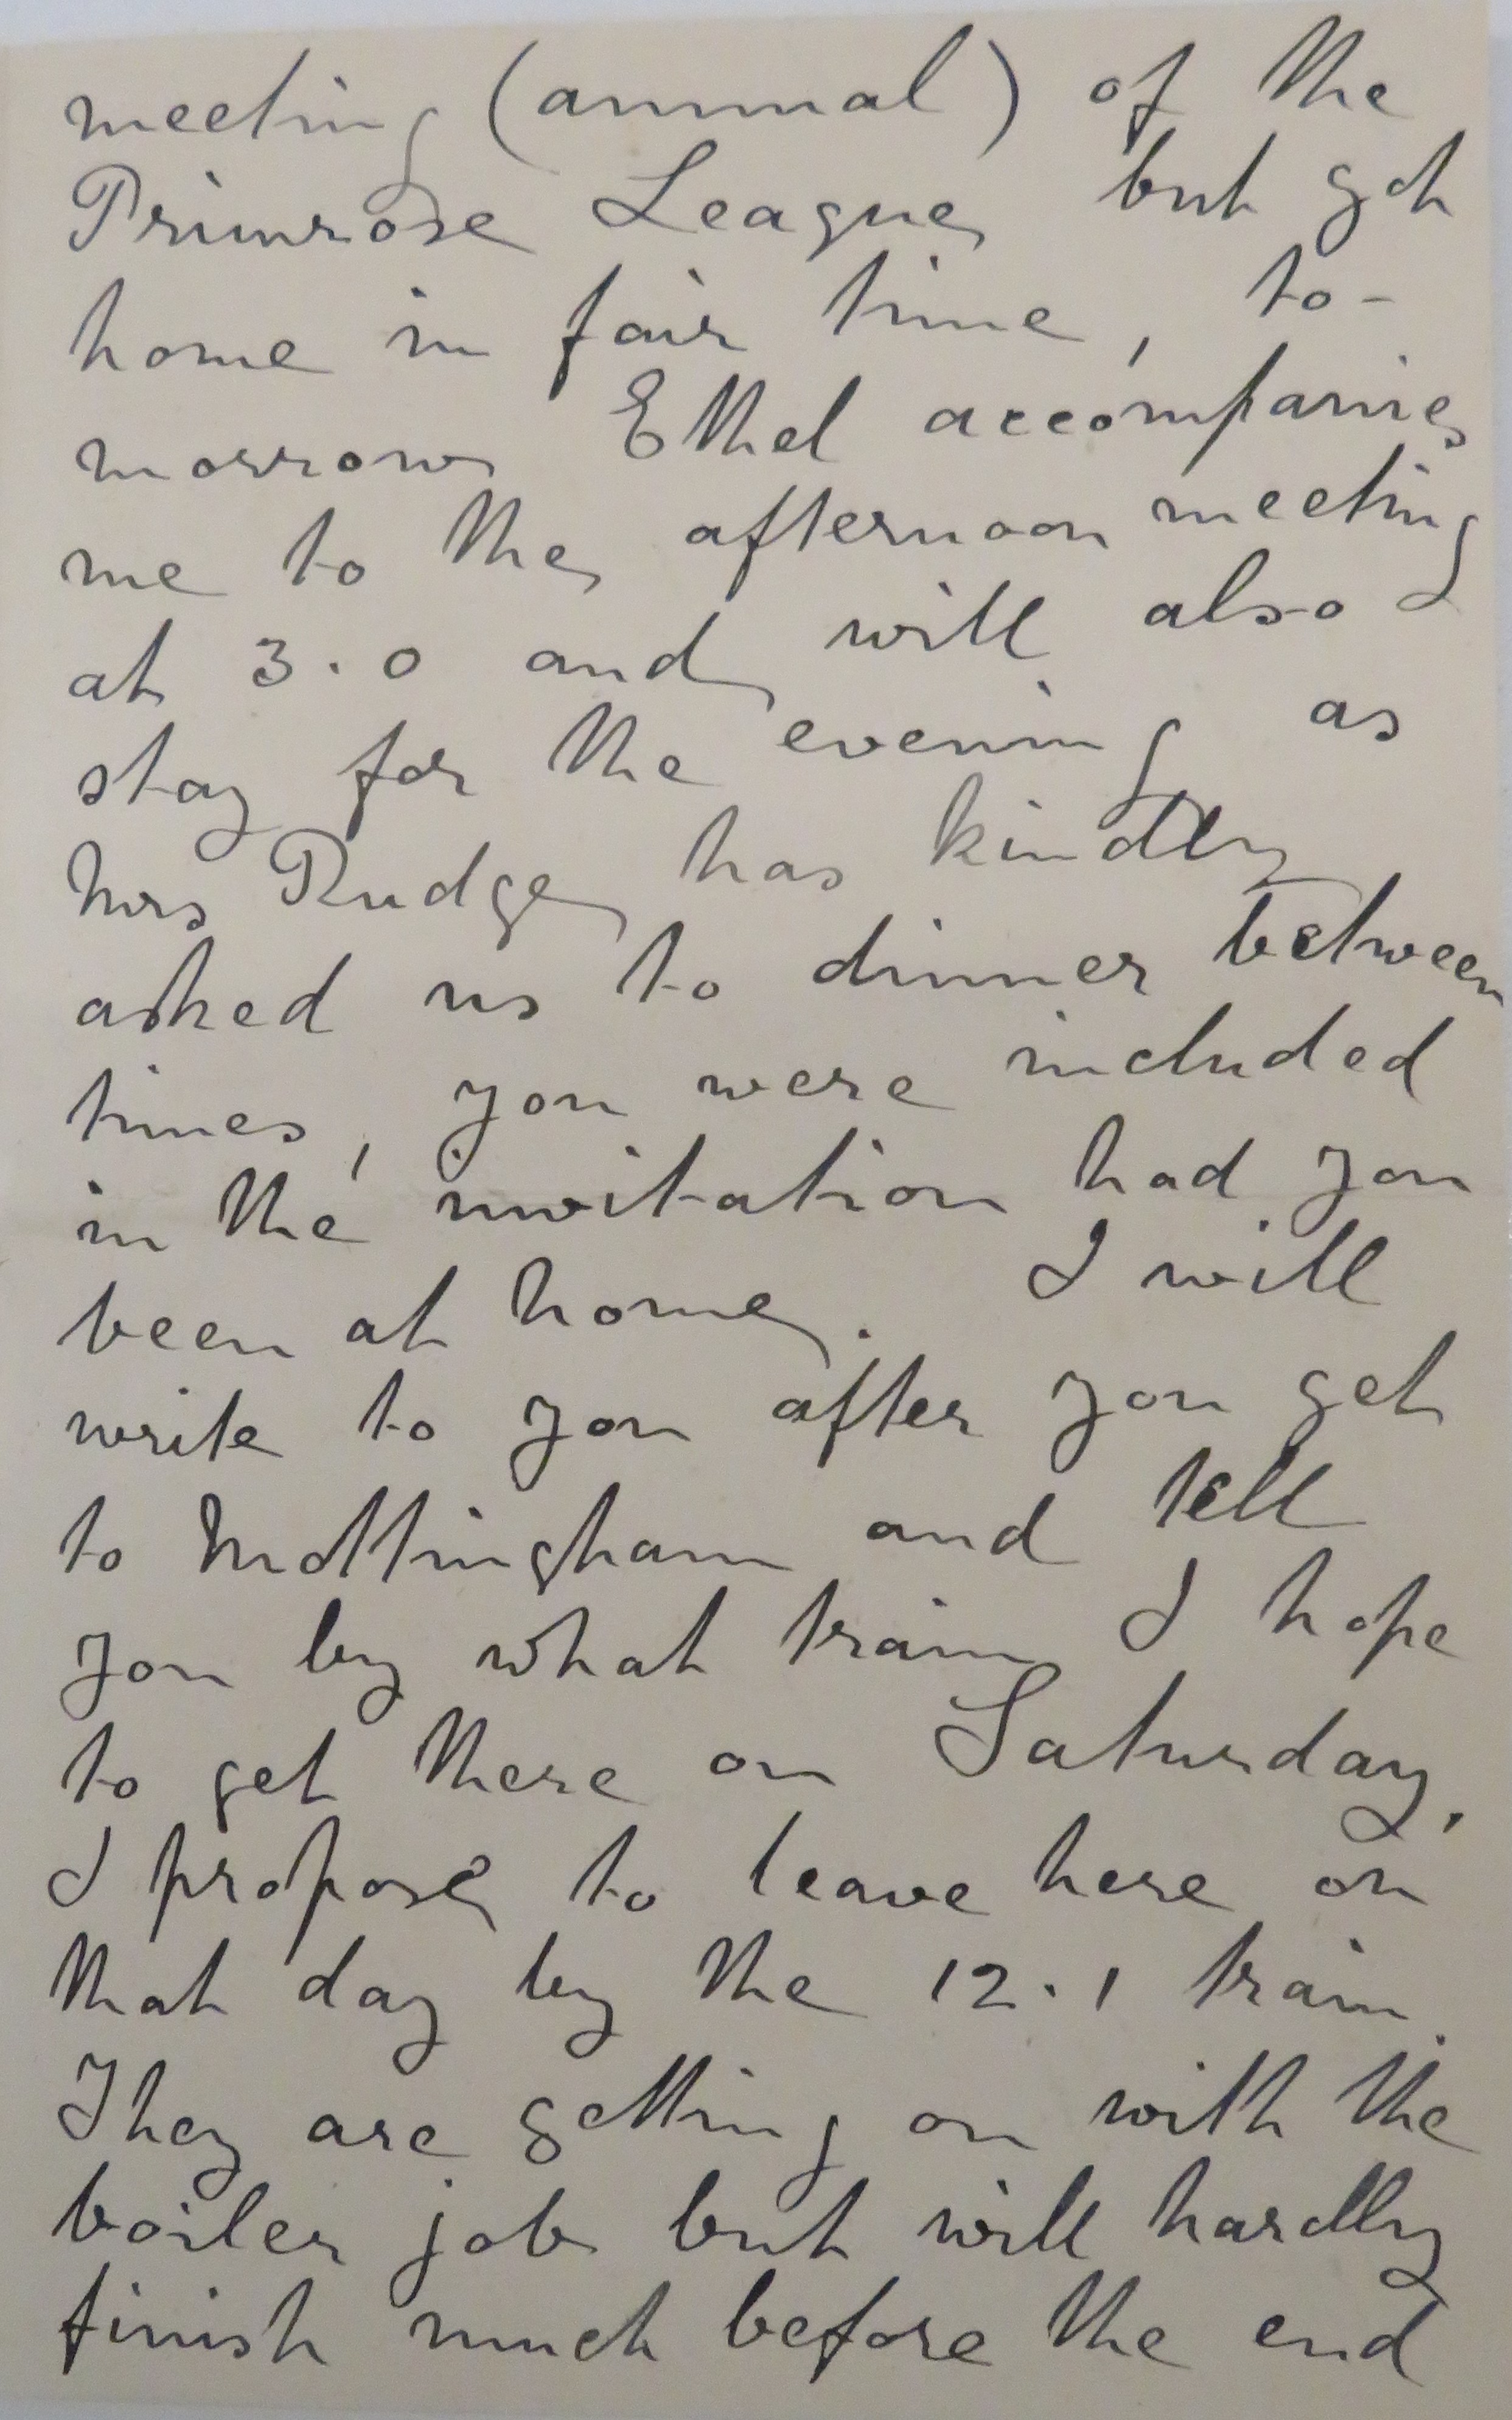 meeting (annual) of the
Primrose League but got
home in fair time, to-
morrow Ethel accompanies
me to the afternoon meeting
at 3.0 and will also
stay for the evening as
Mrs Rudge has kindly
asked us to dinner between
times, you were included
in the invitation had you
been at home. I will
write to you after you get
to Mottingham and tell
you by what train I hope
to get there on Saturday,
I propose to leave here on
that day by the 12.1 train.
They are getting on with the
boiler job but will hardly
finish much before the end